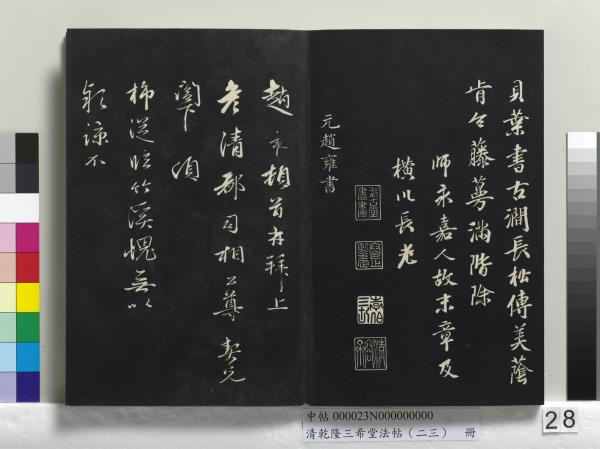 貝葉書古澗長松傳美蔭
肯令藤蔓滿階除
師永嘉人故末章及
橫川長老
元趙雍書
趙雍頓首再拜上
老清郡司相公尊契兄
閤下 頃
柿從
竹溪愧無以
諒不
中帖 000023N000000000
清乾隆三希堂法帖(二三) 冊
28